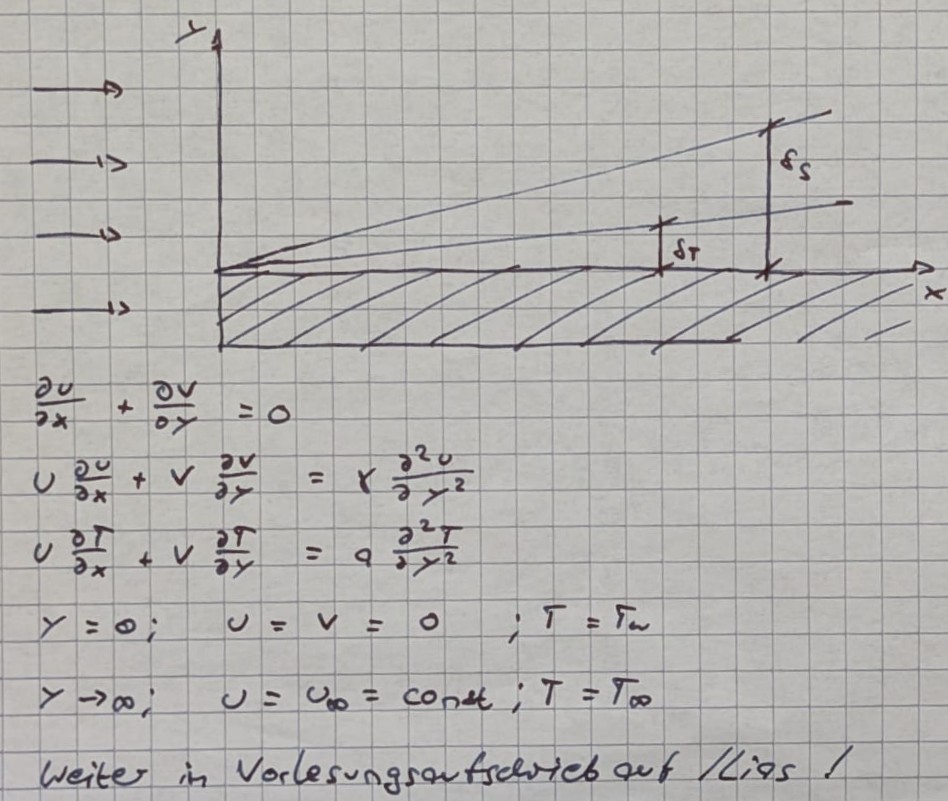 Y
δs
δT
X
∂u/∂x + ∂v/∂y = 0
u ∂u/∂x + v ∂v/∂y = γ ∂²u/∂y²
u ∂T/∂x + v ∂T/∂y = a ∂²T/∂y²
Y = 0; u = v = 0 ; T = Tw
Y → ∞; u = u∞ = const ; T = T∞
Weiter in Vorlesungsaufschrieb auf Ilias !